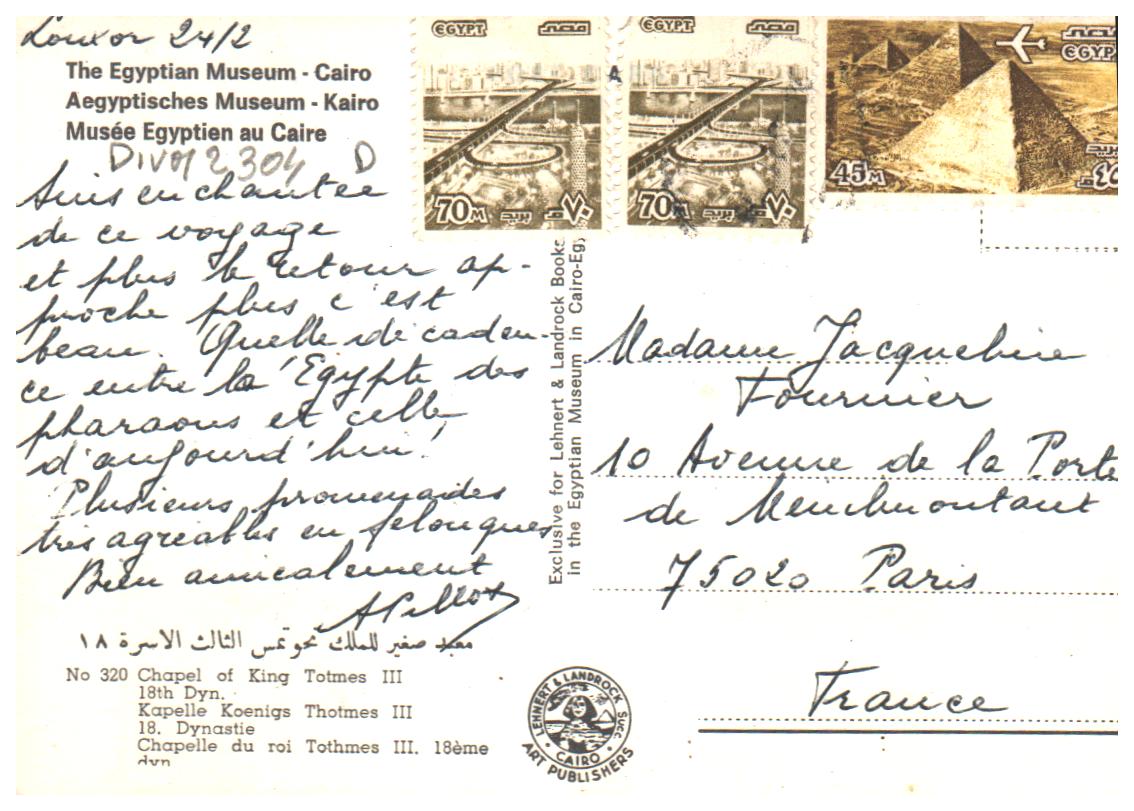 Louxor 24/2
The Egyptian Museum - Cairo
Aegyptisches Museum - Kairo
Musée Egyptien au Caire
Divol 2304 D
Suis enchantée
de ce voyage
et plus le retour ap-
proche plus c'est
beau. Quelle décaden-
ce entre la Egypte des
pharaons et celle
d'aujourd'hui!
Plusieurs promenades
très agréables en felouques
Bien amicalement
معبد صغير للملك تحوتمس الثالث الاسرة ١٨
No 320 Chapel of King Totmes III
18th Dyn.
Kapelle Koenigs Thotmes III
18. Dynastie
Chapelle du roi Tothmes III. 18ème
dyn
Exclusive for Lehnert & Landrock Books
in the Egyptian Museum in Cairo-Egy
LEHNERT & LANDROCK SUCC.
CAIRO
ART PUBLISHERS
EGYPT مصر
70M بريد ٧٠م
EGYPT مصر
70M بريد ٧٠م
A
مصر
EGYPT
بريد
45M ٤٥م
Madame Jacqueline
Fournier
10 Avenue de la Porte
de Ménilmontant
75020 Paris
France